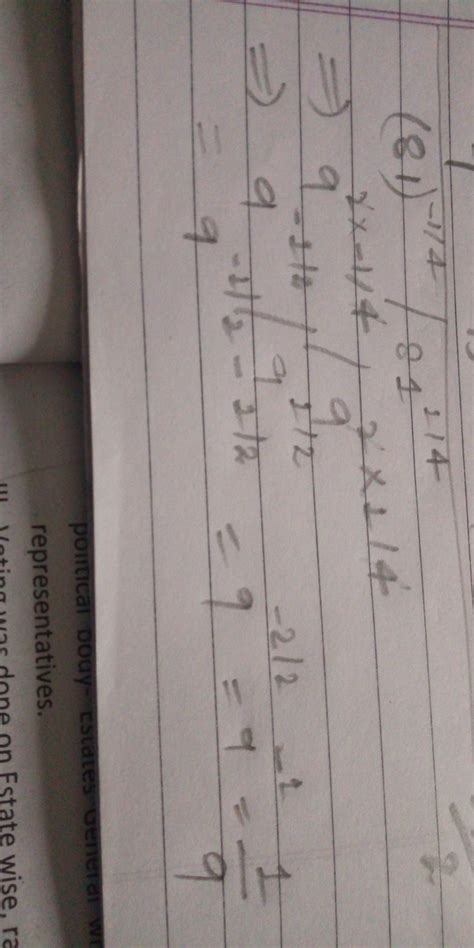 (81)^-1/4 / 81^1/4
⇒ 9^2×-1/4 / 9^2×1/4
⇒ 9^-1/2 / 9^1/2
= 9^-1/2-1/2 = 9^-2/2 = 9^-1 = 1/9
political body- Estates General
representatives.
III. Voting was done on Estate wise,